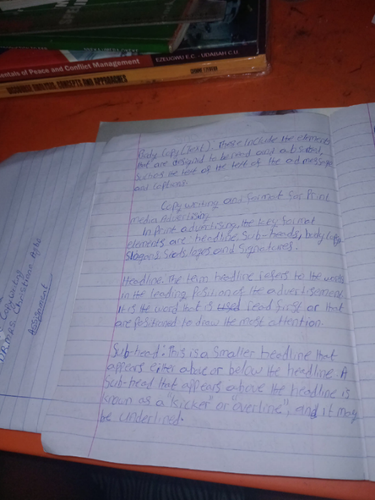 EZEUGWU F.C - UDABAH C.U
entals of Peace and Conflict Management
CONCEPTS AND APPROACHES
Body Copy (Text): These include the elements
that are designed to be read and absorbed,
such as the text of the ad message
and captions.
Copy writing and format for Print
media Advertising
In Print advertising, the key format
elements are headline, Sub-heads, body Copy
Slogans, Seals, logos, and Signatures.
Headline: The term headline refers to the words
in the leading Position of the advertisement.
It is the word that is read first or that
are positioned to draw the most attention.
Sub-head: This is a smaller headline that
appears either above or below the headline. A
Sub-head that appears above the headline is
known as a "kicker" or "overline", and it may
be underlined.
Copywriting
Christiana
Assessment